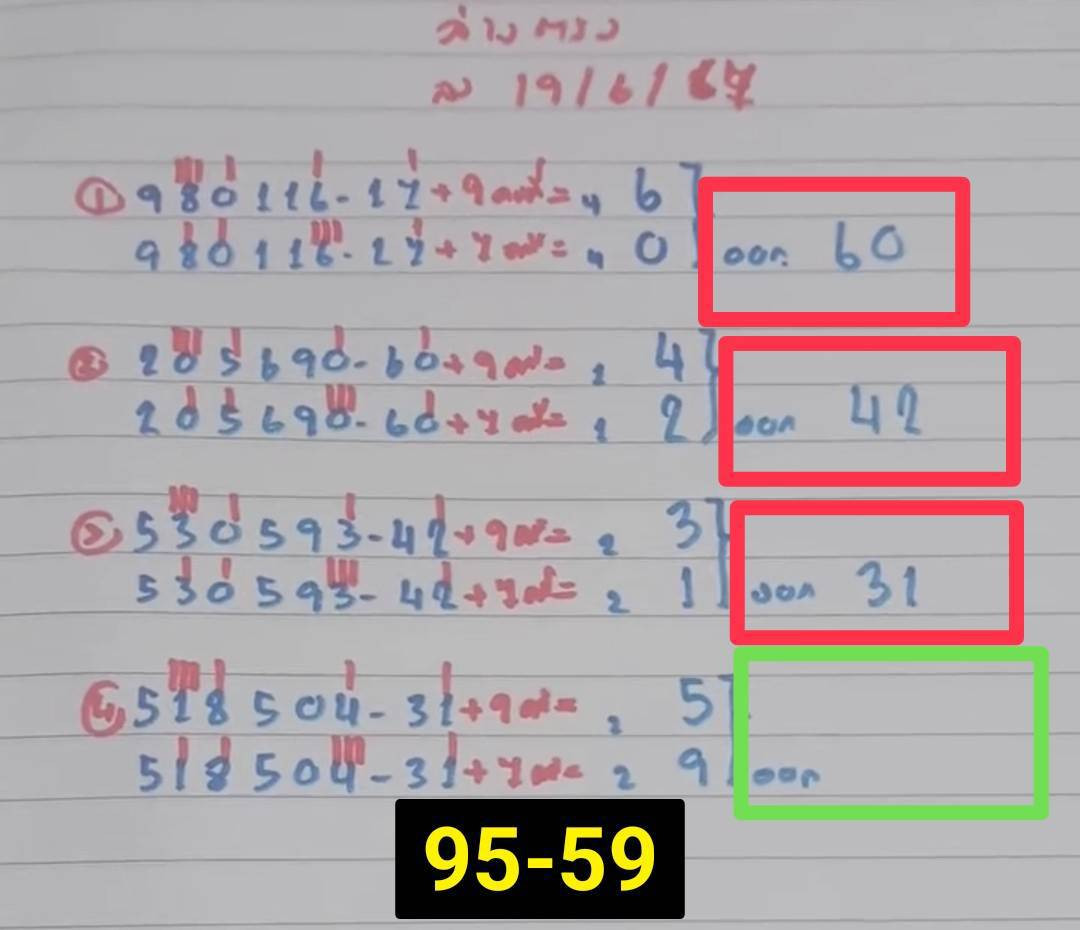 ล่างตรง
ลว 19/6/67
① 980116-17+9คงที่= 4 6
980116-17+7คงที่= 4 0 ออก 60
② 205690-60+9คงที่= 2 4
205690-60+7คงที่= 2 2 ออก 42
③ 530593-42+9คงที่= 2 3
530593-42+7คงที่= 2 1 ออก 31
④ 518504-31+9คงที่= 2 5
518504-31+7คงที่= 2 9 ออก
95-59